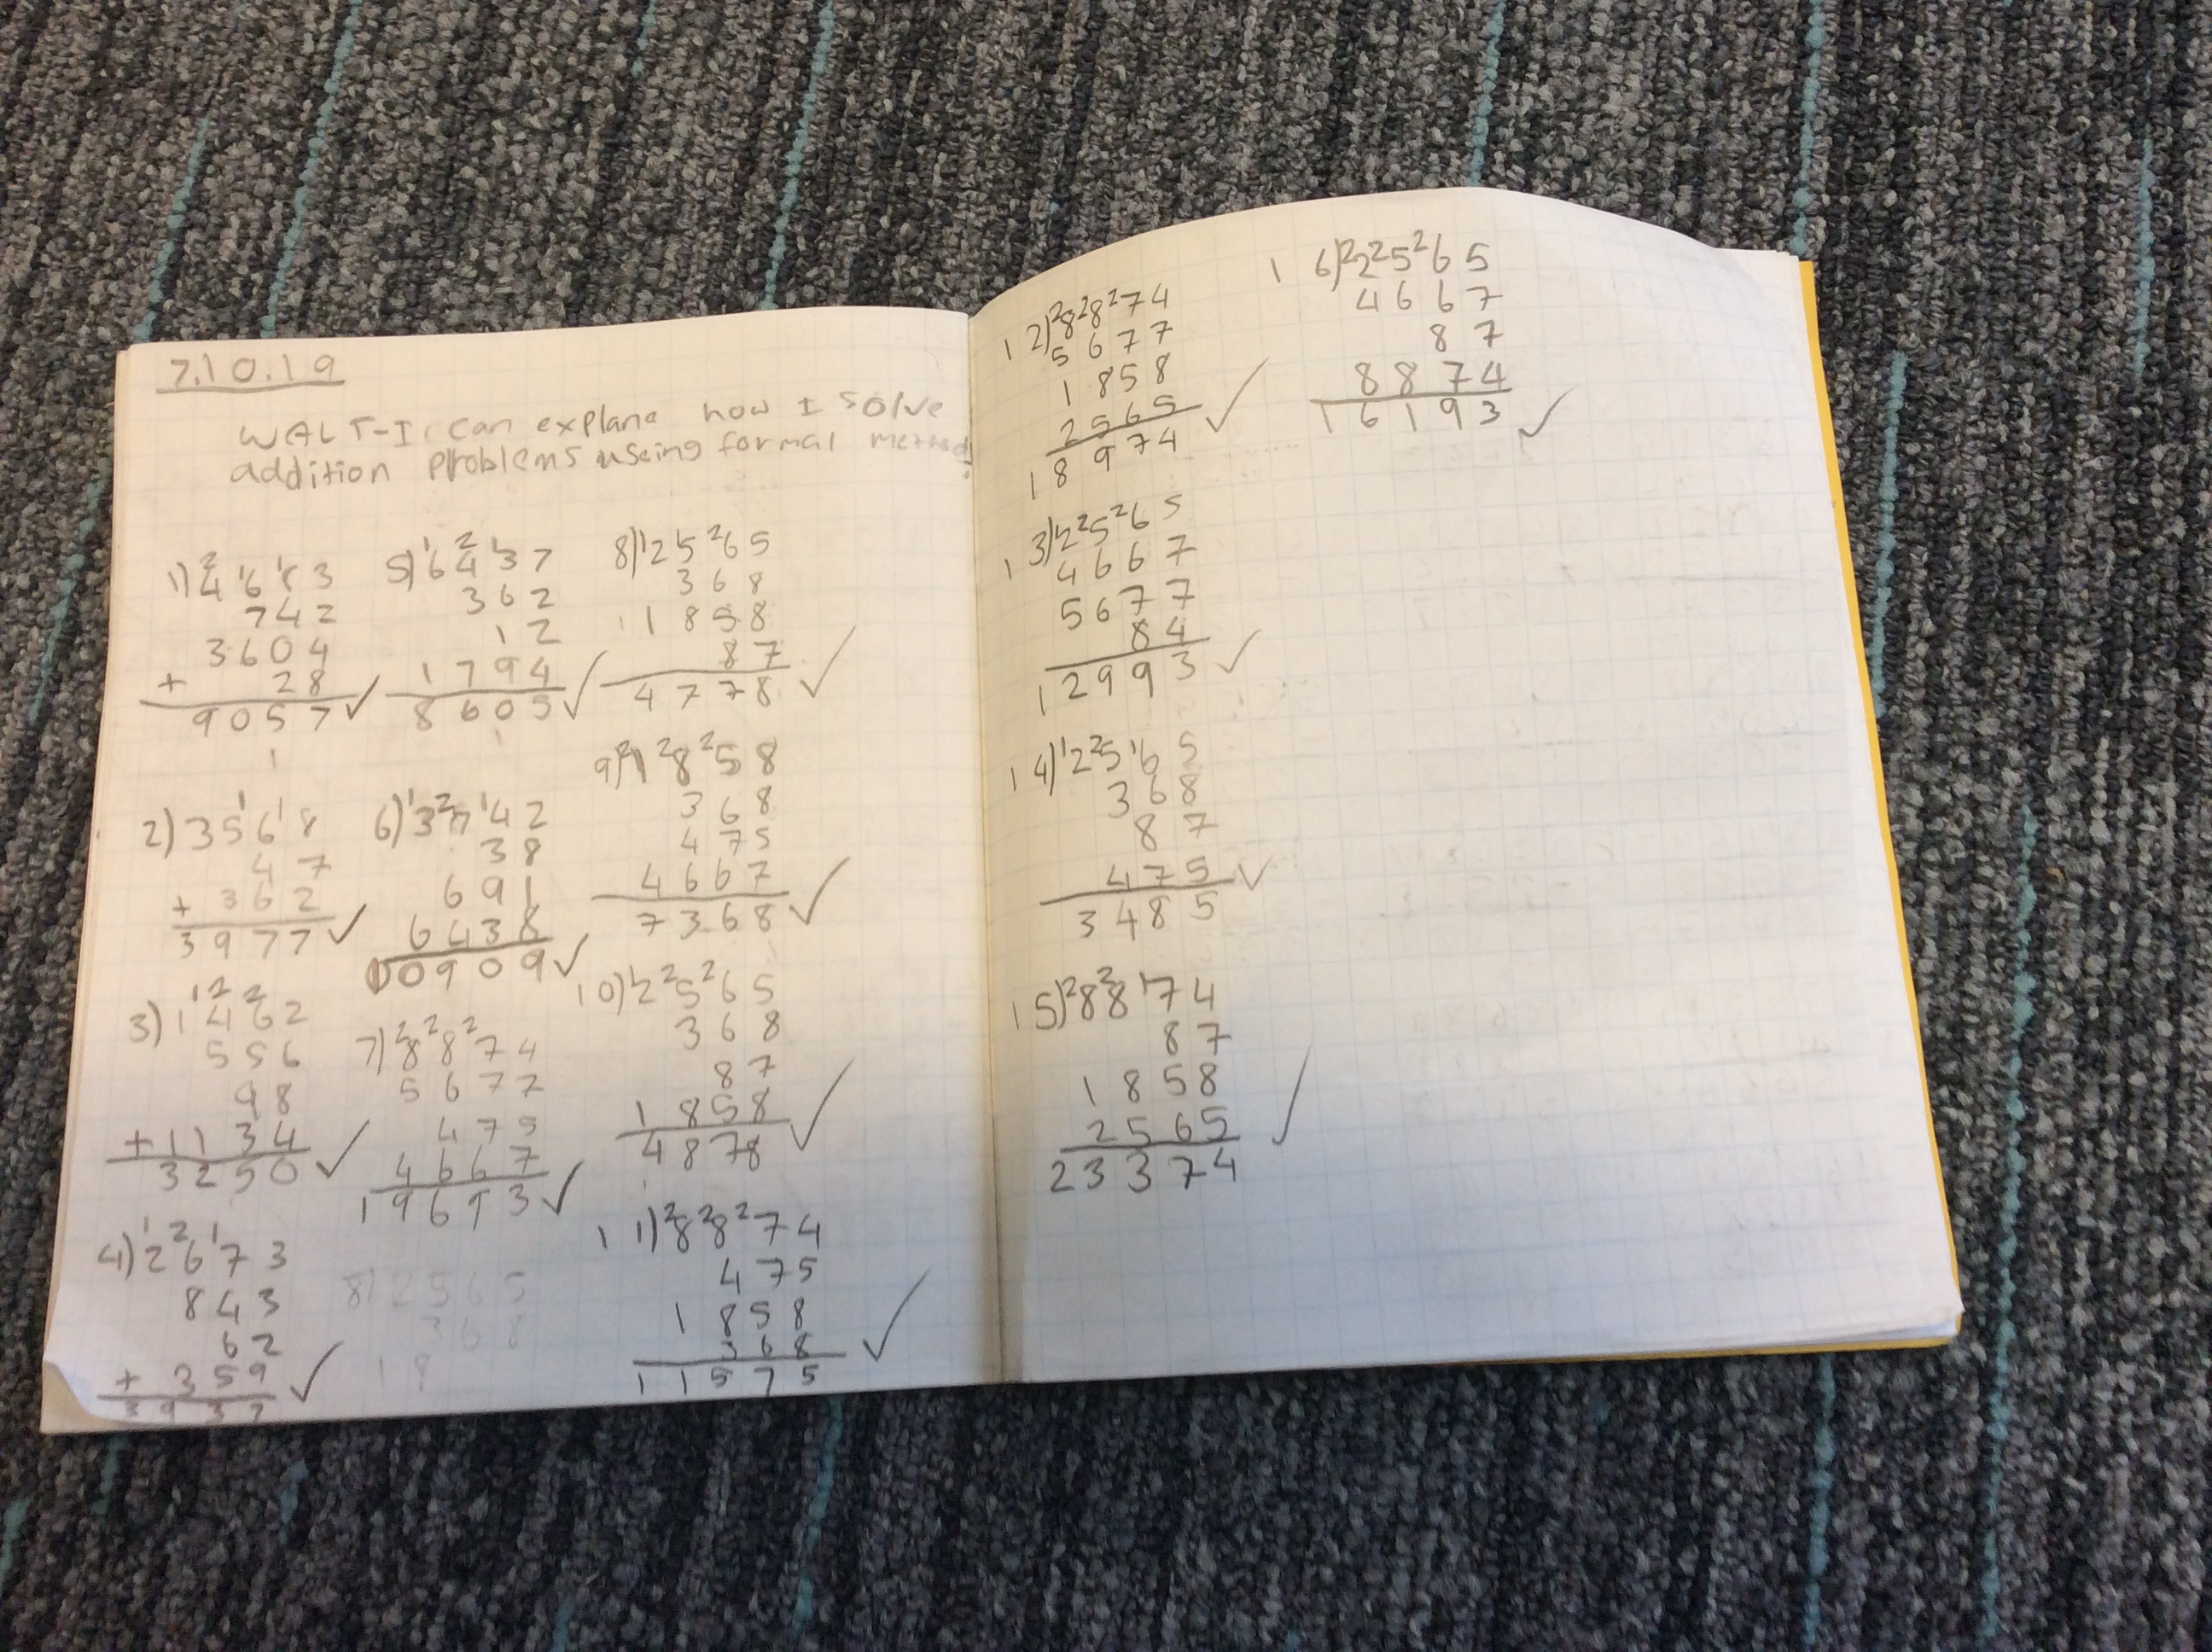 7.10.19
WALT-I can explane how I solve
addition problems useing formal method.
1) 4683
742
3604
+ 28
9057
1
2) 3568
47
+ 362
3977
3) 1462
556
98
+1134
3250
4) 2673
843
62
+ 359
3937
5) 6437
362
12
1794
8605
1
6) 3742
38
691
6438
10909
7) 8874
5677
475
4667
19693
8) 2565
368
18
8) 2565
368
1858
87
4778
9) 1858
368
475
4667
7368
10) 2565
368
87
1858
4878
11) 8874
475
1858
368
11575
12) 8874
5677
1858
2565
18974
13) 2565
4667
5677
84
12993
14) 2565
368
87
475
3485
15) 8874
87
1858
2565
23374
16) 2565
4667
87
8874
16193